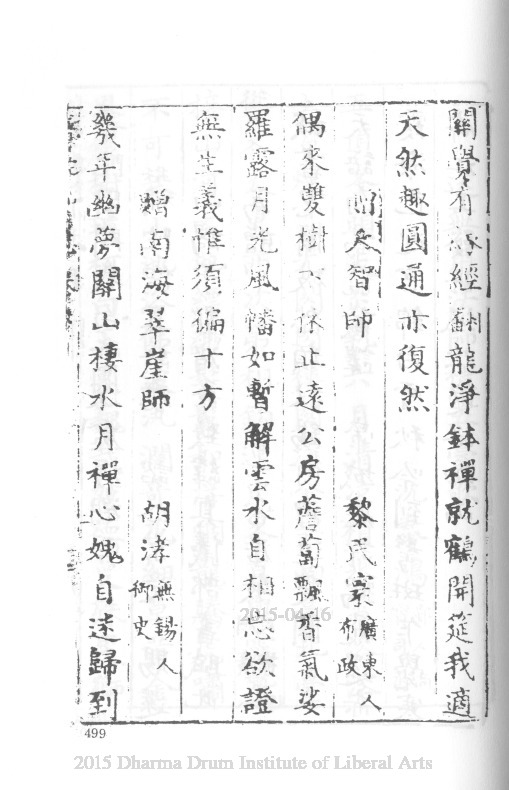 關覺有經翻龍淨鉢禪就鶴開筵我適
天然趣圓通亦復然
智師 黎民寰廣東人布政
偶來雙樹下休止遠公房薝蔔飄香氣娑
羅露月光風幡如暫解雲水自相忘欲證
無生義惟須徧十方
贈南海翠崖師 胡涍無錫人御史
幾年幽夢關山棲水月禪心媿自迷歸到
499
2015-04-16
2015 Dharma Drum Institute of Liberal Arts